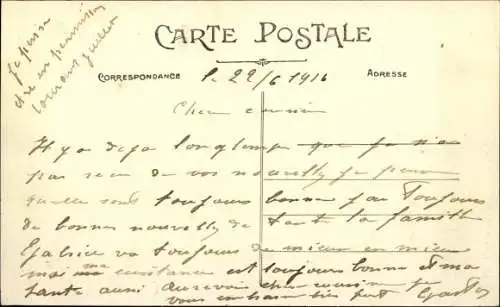 Je pense
être en permission
courant juillet
CARTE POSTALE
CORRESPONDANCE
ADRESSE
le 22/6 1916
Cher cousin
Il y a deja longtemps que je n'ai
pas recu de vos nouvelly je pense
quelle sont toujours bonne j'ai toujours
de bonnes nouvelly de toute la famille
va toujours de mieux en mieux
moi ma est toujours bonne et ma
sante aussi aurevoir cher cousin je
vous embrasse bien fort Gaston